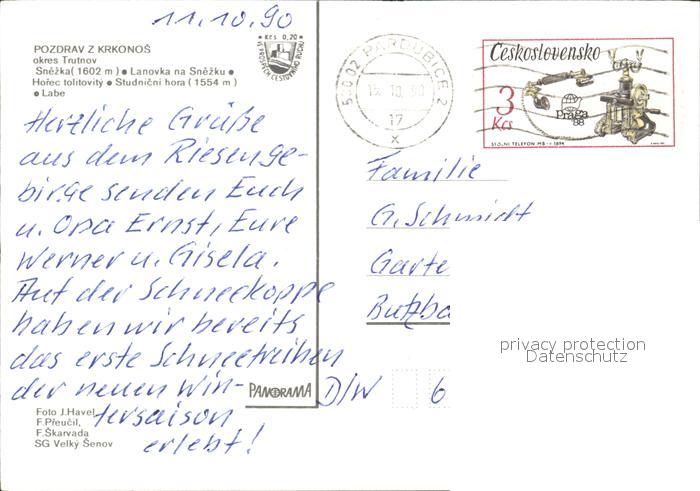 11.10.90
POZDRAV Z KRKONOŠ
okres Trutnov
Sněžka (1602 m) ● Lanovka na Sněžku ●
Hořec tolitovitý ● Studniční hora (1554 m)
● Labe
Kčs 0,20
Herzliche Grüße
aus dem Riesenge-
birge senden Euch
u. Opa Ernst, Eure
Werner u. Gisela.
Auf der Schneekoppe
haben wir bereits
das erste Schneetreiben
der neuen Win-
tersaison
erlebt!
PANORAMA
Foto J.Havel,
F.Přeučil,
F.Škarvada
SG Velký Šenov
530 02 PARDUBICE 2
10. 90
17
x
Československo
3
Kčs
Praga
88
STOLNÍ TELEFON MB - r. 1894
Familie
G. Schmidt
Garte
Butzba
D/W 6
privacy protection
Datenschutz